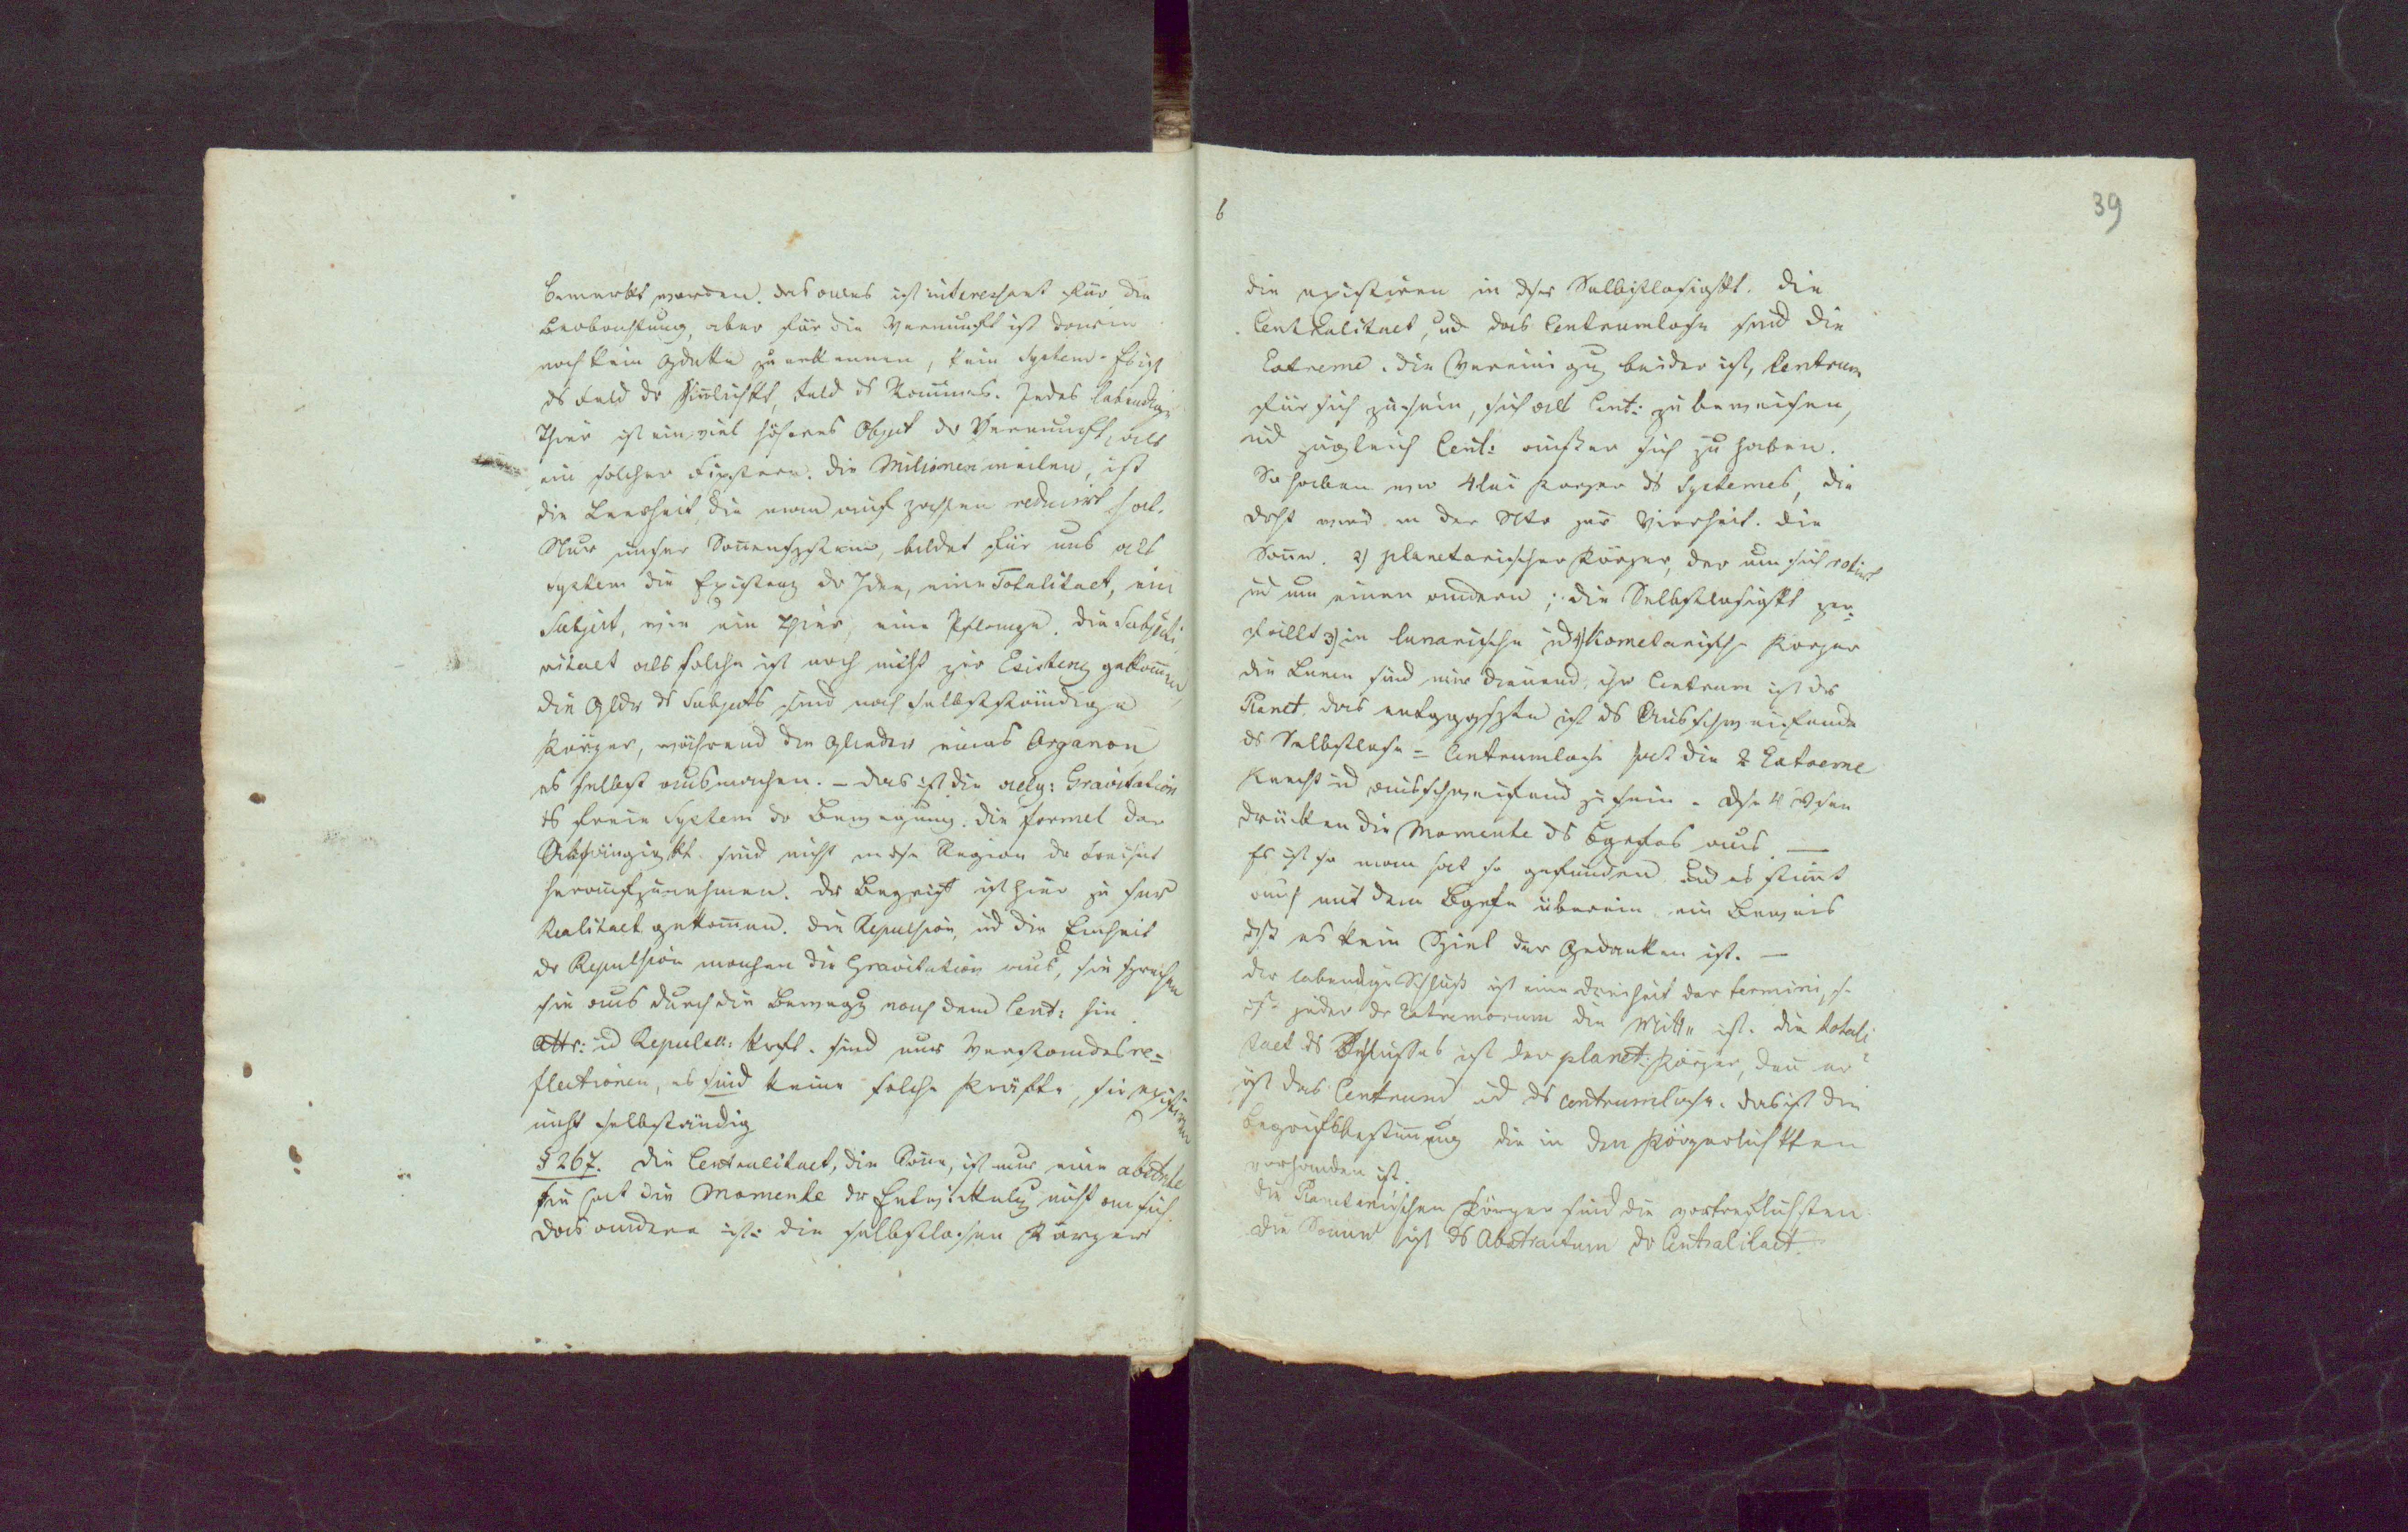 bemerkt worden. das alles ist interessant für die
Beobachtung, aber für die Vernunft ist darin
noch kein Gdke zu erkennen, kein System. Es ist
ds Feld der Sinnlichkt, Feld ds Raumes. Jedes lebendige
Thier ist ein viel höheres Objekt der Vernunft, als
ein solcher Fixstern. Die Milionen meilen, ist
die Leerheit, die man auf zahlen reducirt hat.
Nur unser Sonnensystem, bildet für uns als
system die Existenz der Idee, eine Totalitaet, ein
Subject, wie ein Thier, eine Pflanze. Die Subjecti
vitaet als solche ist noch nicht zur Existenz gekommen,
die Gldr ds Subjects sind noch selbstständige
Körper, während die Glieder eines Organon
es selbst ausmachen. – das ist die allg: Gravitation
ds freie System der Bewegung. Die formel der
Abhängigkt. sind nicht in dse Region der Freiheit
heraufzunehmen. Der Begriff ist hier zu sr
Realitaet gekommen. Die Repulsion, ud die Einheit
der Repulsion machen die Gravitation aus, sie sprechen
sie aus durch die Bewegg nach dem Cent: hin.
Attr: ud Repuls: Krft. sind nur Verstandes re=
flectionen, es sind keine solche Kräfte, sie existiren
nicht selbständig
§ 267. Die Centralitaet, die Sonne, ist nur eine abstrkte
sie hat die Momente der Entwicklung nicht an sich.
das andere ist: die selbstlosen Körper
6
39
die existiren in dser Selbstlosigkt. Die
Centralitaet, ud das Centrumlose sind die
Extreme. Die Vereinigug beider ist, Centrum
für sich zu sein, sich als Cent: zu beweisen,
ud zugleich Cent: außer sich zu haben.
So haben wir 4lei Körper ds Systemes, die
drht wird in der Ntr zur Vierheit. die
Sonne. 2) planetarischer Körper, der um sich rotirt
ud um einen andern; die Selbstlosigkt zer=
fällt 3) in lunarische ud 4) Kometarische Körper
die Lunen sind nur dienend, ihr Centrum ist der
Planet. das entgggstzte ist ds Ausschweifende
ds Selbstlose = Centrumlose hat die 2 Extreme
Knecht ud ausschweifend zu sein. Dse 4
drücken die Momente ds Bgrfes aus. –
Es ist so man hat so gefunden. Und es stimmt
auch mit dem Bgrfe überein, ein Beweis
dß es kein Spiel der Gedanken ist. –
Der lebendige Schluß ist eine dreiheit der termini, s.
jeder der Extremorum die Mitte ist. Die totali
taet ds Schlusses ist der planet: Körper, denn er
ist das Centrum ud ds centrumlose. das ist die
Begriffsbestimmung die in den Körperlichkten
vorhanden ist.
die Planetarischen Körper sind die vortreflichsten.
Die Sonne ist ds Abstractum der Centralitaet.